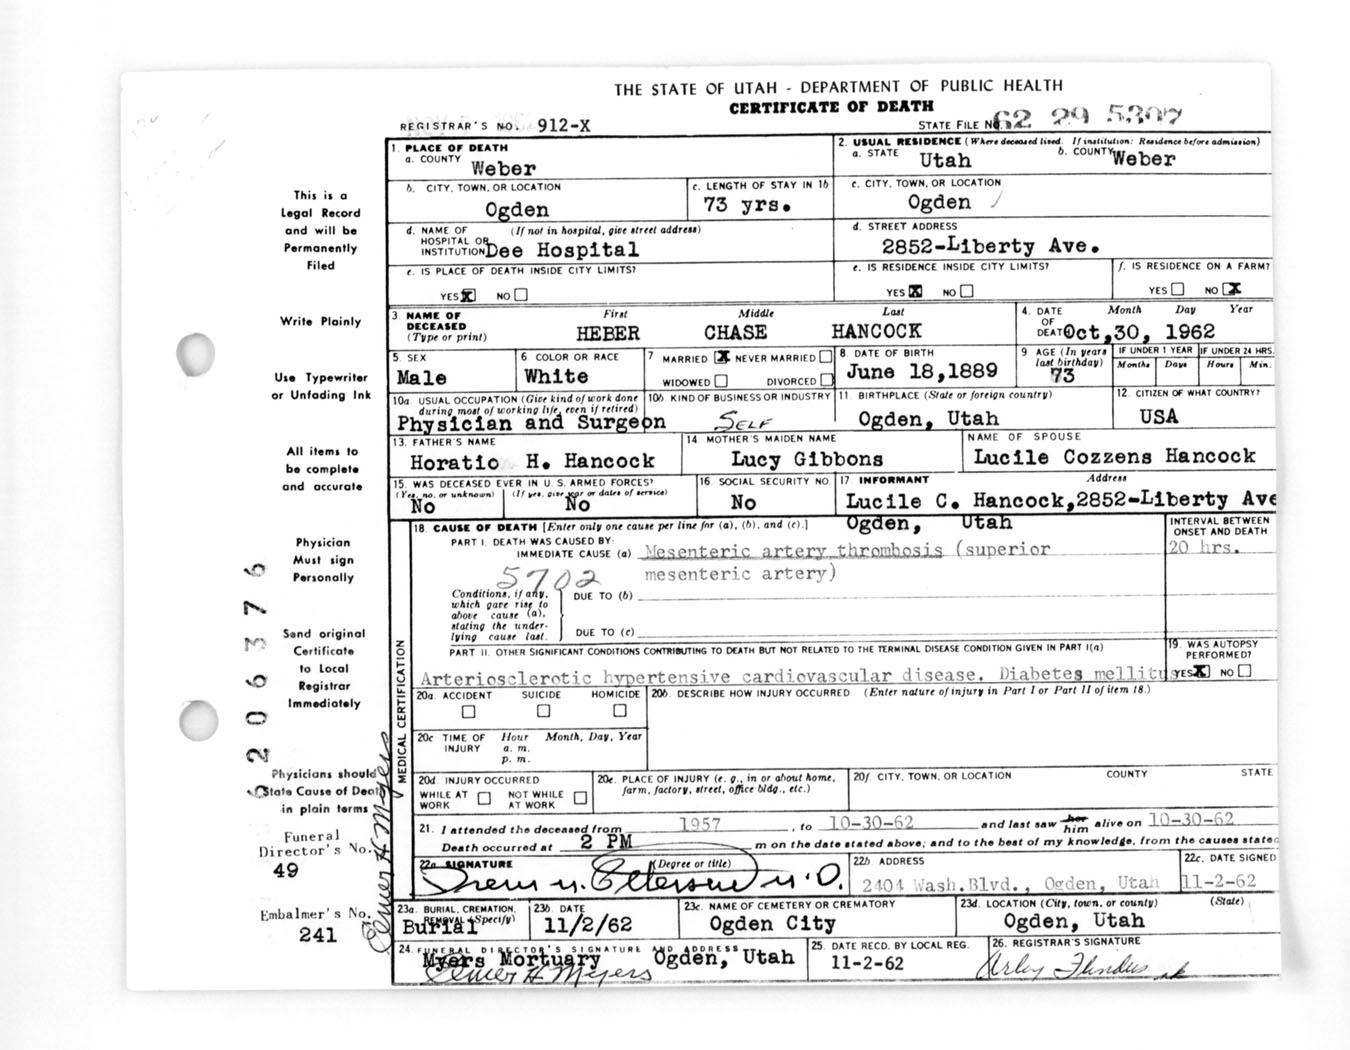 THE STATE OF UTAH - DEPARTMENT OF PUBLIC HEALTH
CERTIFICATE OF DEATH
REGISTRAR'S NO. 912-X
STATE FILE NO. 62 29 5307
1. PLACE OF DEATH
a. COUNTY Weber
2. USUAL RESIDENCE (Where deceased lived. If institution: Residence before admission)
a. STATE Utah b. COUNTY Weber
b. CITY, TOWN, OR LOCATION Ogden
c. LENGTH OF STAY IN 1b 73 yrs.
c. CITY, TOWN, OR LOCATION Ogden
d. NAME OF HOSPITAL OR INSTITUTION (If not in hospital, give street address) Dee Hospital
d. STREET ADDRESS 2852-Liberty Ave.
e. IS PLACE OF DEATH INSIDE CITY LIMITS?
YES X NO
e. IS RESIDENCE INSIDE CITY LIMITS?
YES X NO
f. IS RESIDENCE ON A FARM?
YES NO X
3 NAME OF DECEASED (Type or print)
First Middle Last
HEBER CHASE HANCOCK
4. DATE OF DEATH Month Day Year
Oct,30, 1962
5. SEX Male
6 COLOR OR RACE White
7 MARRIED X NEVER MARRIED
WIDOWED DIVORCED
8. DATE OF BIRTH June 18,1889
9 AGE (In years last birthday) 73
IF UNDER 1 YEAR Months Days
IF UNDER 24 HRS. Hours Min.
10a. USUAL OCCUPATION (Give kind of work done during most of working life, even if retired)
Physician and Surgeon
10b. KIND OF BUSINESS OR INDUSTRY SELF
11 BIRTHPLACE (State or foreign country) Ogden, Utah
12. CITIZEN OF WHAT COUNTRY? USA
13. FATHER'S NAME Horatio H. Hancock
14 MOTHER'S MAIDEN NAME Lucy Gibbons
NAME OF SPOUSE Lucile Cozzens Hancock
15. WAS DECEASED EVER IN U. S. ARMED FORCES?
(Yes, no, or unknown) No (If yes, give war or dates of service) No
16 SOCIAL SECURITY NO. No
17 INFORMANT Address
Lucile C. Hancock,2852-Liberty Ave
Ogden, Utah
18. CAUSE OF DEATH [Enter only one cause per line for (a), (b), and (c).]
INTERVAL BETWEEN ONSET AND DEATH
PART I. DEATH WAS CAUSED BY:
IMMEDIATE CAUSE (a) Mesenteric artery thrombosis (superior
20 hrs.
5702 mesenteric artery)
Conditions, if any, which gave rise to above cause (a), stating the underlying cause last.
DUE TO (b)
DUE TO (c)
PART II. OTHER SIGNIFICANT CONDITIONS CONTRIBUTING TO DEATH BUT NOT RELATED TO THE TERMINAL DISEASE CONDITION GIVEN IN PART I(a)
Arteriosclerotic hypertensive cardiovascular disease. Diabetes mellitus
19. WAS AUTOPSY PERFORMED?
YES X NO
20a. ACCIDENT SUICIDE HOMICIDE
20b. DESCRIBE HOW INJURY OCCURRED. (Enter nature of injury in Part I or Part II of item 18.)
20c TIME OF INJURY Hour Month, Day, Year
a. m.
p. m.
20d. INJURY OCCURRED
WHILE AT WORK NOT WHILE AT WORK
20e. PLACE OF INJURY (e. g., in or about home, farm, factory, street, office bldg., etc.)
20f. CITY, TOWN, OR LOCATION COUNTY STATE
21. I attended the deceased from 1957, to 10-30-62 and last saw her him alive on 10-30-62
Death occurred at 2 PM m on the date stated above; and to the best of my knowledge, from the causes stated
22a SIGNATURE (Degree or title) M.D.
22b ADDRESS 2404 Wash.Blvd., Ogden, Utah
22c. DATE SIGNED 11-2-62
23a. BURIAL, CREMATION, REMOVAL (Specify) Burial
23b. DATE 11/2/62
23c. NAME OF CEMETERY OR CREMATORY Ogden City
23d. LOCATION (City, town, or county) (State) Ogden, Utah
24. FUNERAL DIRECTOR'S SIGNATURE AND ADDRESS
Myers Mortuary Ogden, Utah
Elmer H Myers
25. DATE RECD. BY LOCAL REG. 11-2-62
26. REGISTRAR'S SIGNATURE
This is a
Legal Record
and will be
Permanently
Filed
Write Plainly
Use Typewriter
or Unfading Ink
All items to
be complete
and accurate
Physician
Must sign
Personally
Send original
Certificate
to Local
Registrar
Immediately
Physicians should
State Cause of Death
in plain terms
Funeral
Director's No.
49
Embalmer's No.
241
MEDICAL CERTIFICATION
Elmer H Myers